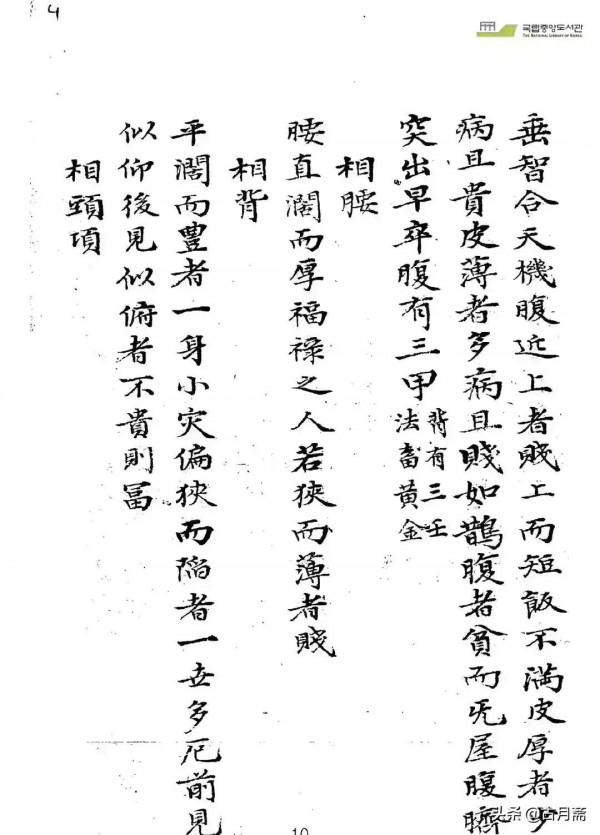 4
국립중앙도서관
THE NATIONAL LIBRARY OF KOREA
垂智合天機腹近上者賤上而短飯不満皮厚者少
病且貴皮薄者多病且賤如鵲腹者貧而旡屋腹臍
突出早卒腹有三甲背有三壬法畜黄金
相腰
腰直濶而厚福禄之人若狹而薄者賤
相背
平濶而豊者一身小灾偏狹而陷者一世多厄前見
似仰後見似俯者不貴則冨
相頸項
10
头条 @古月斋